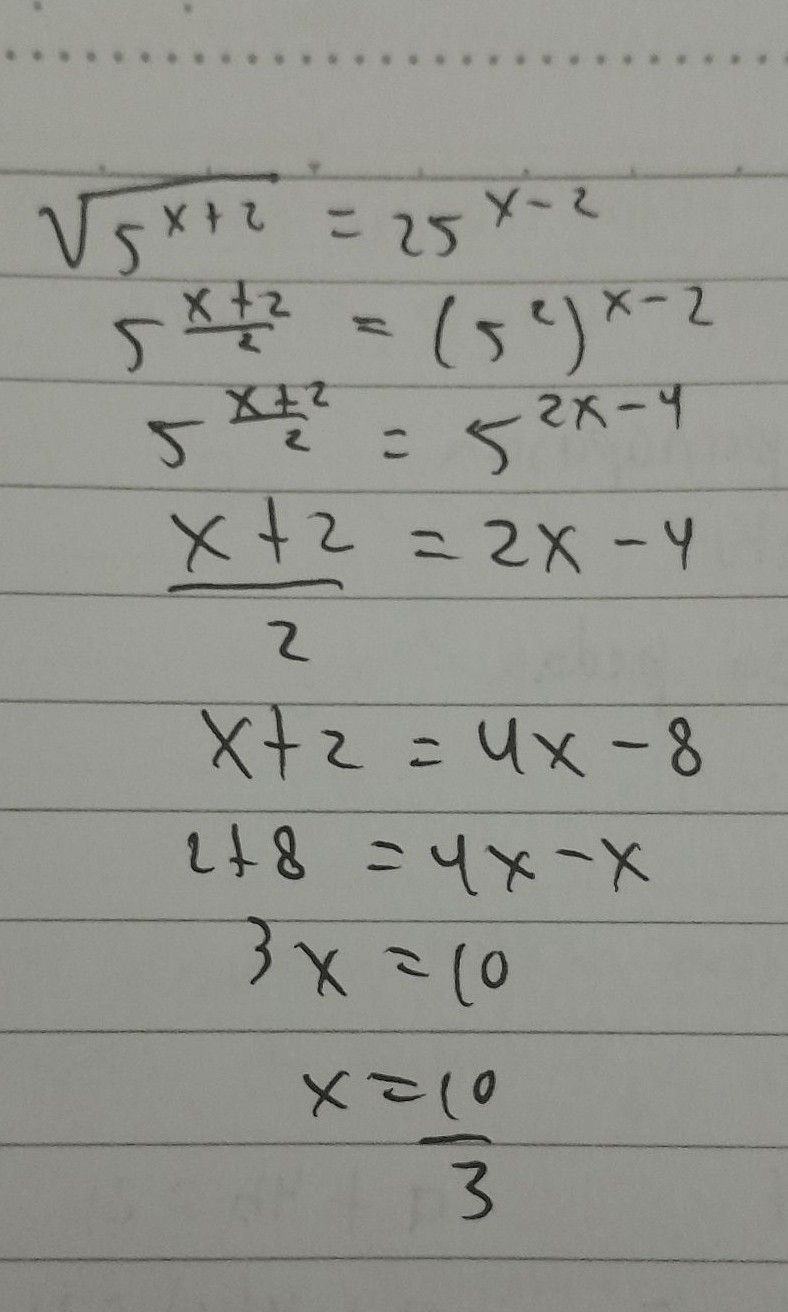 √(5^(x+2)) = 25^(x-2)
5^((x+2)/2) = (5^2)^(x-2)
5^((x+2)/2) = 5^(2x-4)
(x+2)/2 = 2x-4
x+2 = 4x-8
2+8 = 4x-x
3x = 10
x = 10/3